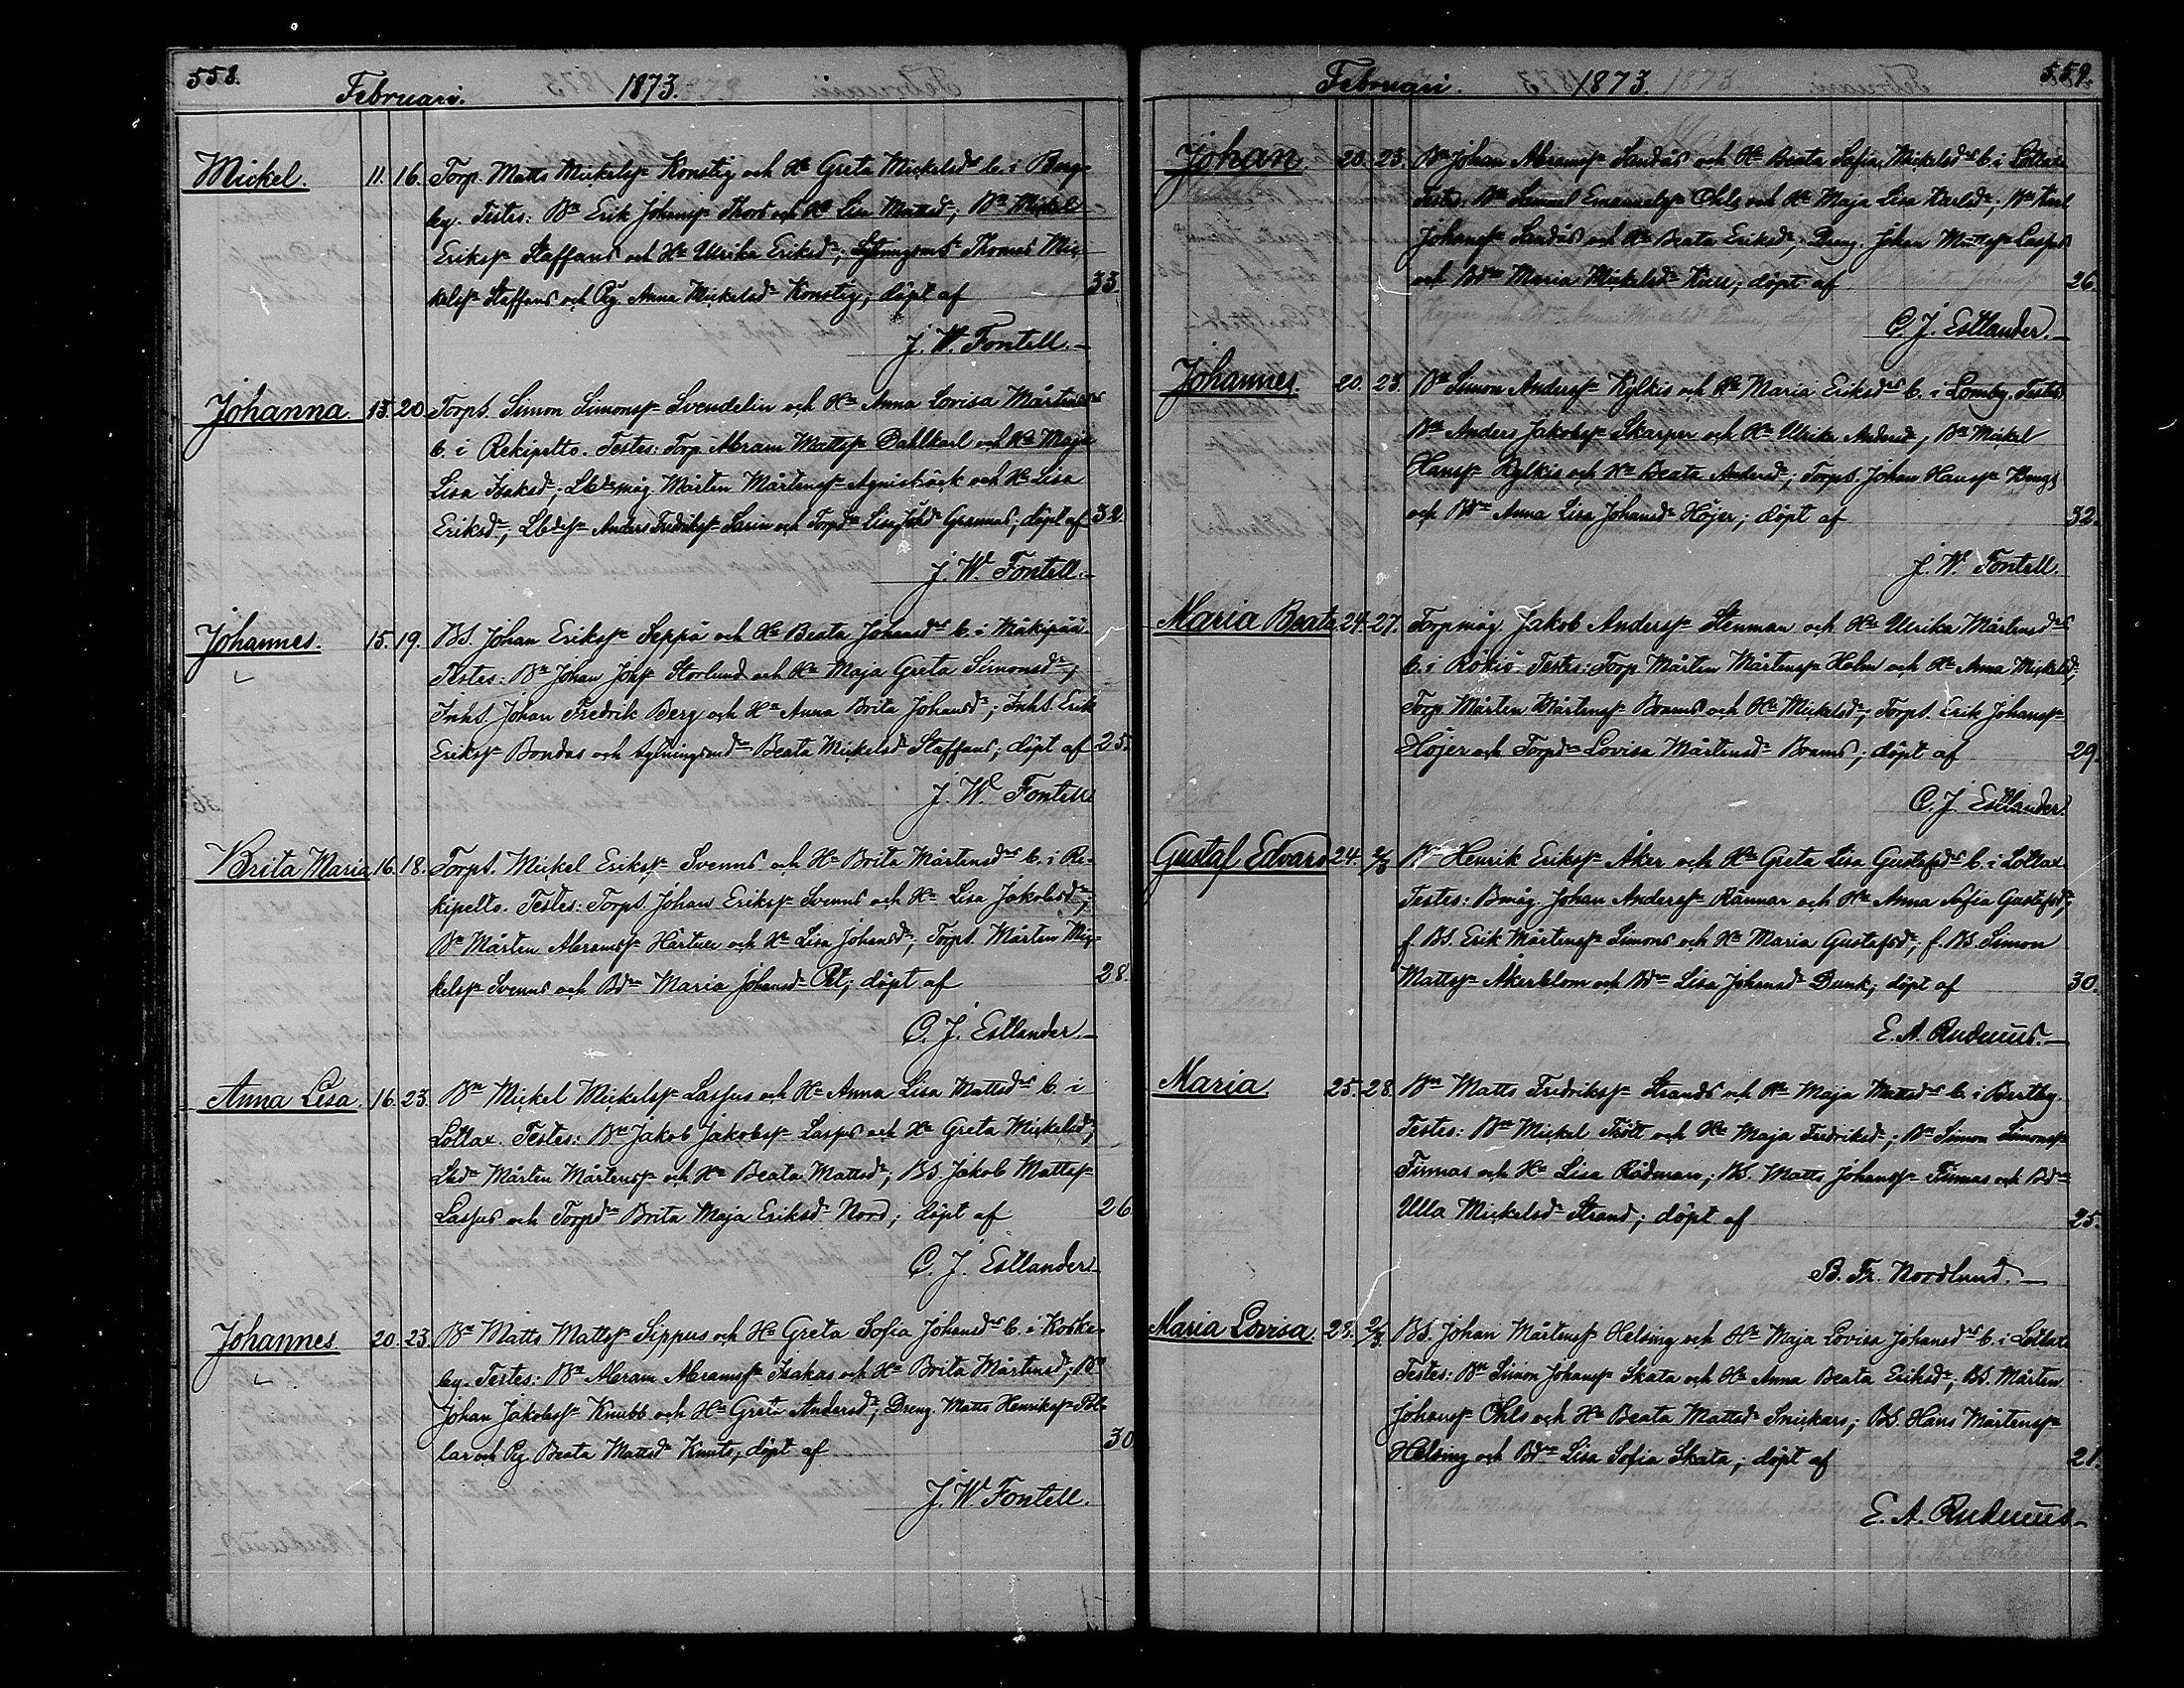 558.
Februari. 1873.
Mickel. 11. 16. Torp. Matts Mickelsſn Konstig och Hu Greta Mickelsdrs b. i Berg-
by. Testes: Bn Erik Johansſn Thors och Hu Lisa Mattsdr; Bn Mickel
Eriksſn Staffans och Hu Ulrika Eriksdr; Sytningsms Thomas Mic-
kelsſn Staffans och Pig. Anna Mickelsdr Konstig; döpt af 33.
J. W. Fontell.
Johanna. 13. 20. Torps. Simon Simonsſn Svendelin och Hu Anna Lovisa Mårtensdrs
b. i Rekipelto. Testes: Torp. Abram Mattsſn Dahlkarl och Hu Maja
Lisa Isaksdr; Lbdsmåg Mårten Mårtensſn Agnisbäck och Hu Lisa
Eriksdr; Lbdsſn Anders Fredriksſn Sarin och Torpdr Lisa Johsdr Grannas; döpt af 32.
J. W. Fontell.
Johannes. 15. 19. BS. Johan Eriksſn Seppä och Hu Beata Johansdrs b. i Mäkipää.
Testes: Bn Johan Johsſn Storlund och Hu Maja Greta Simonsdr;
Inhs. Johan Fredrik Berg och Hu Anna Brita Johansdr; Inhs. Erik
Eriksſn Bondas och Sytningsmdr Beata Mickelsdr Staffans; döpt af 25.
J. W. Fontell
Brita Maria 16. 18. Torps. Mickel Eriksſn Svenns och Hu Brita Mårtensdrs b. i Re-
kipelto. Testes: Torps. Johan Eriksſn Svenns och Hu Lisa Jakobsdr;
Bn Mårten Abramsſn Härtull och Hu Lisa Johansdr; Torps. Mårten Mic-
kelsſn Svenns och Bdr Maria Johansdr Pet; döpt af 28.
C. J. Estlander.
Anna Lisa. 16. 23. Bn Mickel Mickelsſn Lassus och Hu Anna Lisa Mattsdrs b. i
Lottax. Testes: Bn Jakob Jakobsſn Lassus och Hu Greta Mickelsdr;
Mårten Mårtensſn och Hu Beata Mattsdr; BS. Jakob Mattsſn
Lassus och Torpdr Brita Maja Eriksdr Nord; döpt af 26
C. J. Estlander
Johannes 20. 23. Bn Matts Mattsſn Sippus och Hu Greta Sofia Johansdrs b. i Koske-
by. Testes: Bn Abram Abramsſn Isakas och Hu Brita Mårtensdr; Bn
Johan Jakobsſn Knubb och Hu Greta Andersdr; Dreng. Matts Henriksſn Pel-
lar och Pig. Beata Mattsdr Knuts; döpt af 30
J. W. Fontell.
559.
Februari. 1873.
Johan 20. 23. Bn Johan Abramsſn Sandås och Hu Beata Sofia Mickelsdrs b. i Lottax
Testes: Bn Samuel Emanuelsſn Ohls och Hu Maja Lisa Karlsdr; Bn Karl
Johansſn Sandås och Hu Beata Eriksdr; Dreng. Johan Mattsſn Lassus
och Bdr Maria Mickelsdr Kull; döpt af 26.
C. J. Estlander.
Johannes. 20. 23. Bn Simon Andersſn Kylkis och Hu Maria Eriksdrs b. i Lomby. Testes:
Bn Anders Jakobsſn Skarper och Hu Ulrika Andersdr; Bn Mickel
Hansſn Kylkis och Hu Beata Andersdr; Torps. Johan Hansſn Bengs
och Bdr Anna Lisa Johansdr Höjer; döpt af 32.
J. W. Fontell.
Maria Beata 24. 27. Torpmåg Jakob Andersſn Stenman och Hu Ulrika Mårtensdrs
b. i Rökiö. Testes: Torp. Mårten Mårtensſn Holm och Hu Anna Mickelsdr;
Torp. Mårten Mårtensſn Brams och Hu Mickelsdr; Torps. Erik Johansſn
Höjer och Torpdr Lovisa Mårtensdr Brams; döpt af 29.
C. J. Estlander.
Gustaf Edvard 24. 2/3 Bn Henrik Eriksſn Åker och Hu Greta Lisa Gustafsdrs b. i Lottax
Testes: Bmåg. Johan Andersſn Rännar och Hu Anna Sofia Gustafsdr;
f. BS. Erik Mårtensſn Simons och Hu Maria Gustafsdr; f. BS. Simon
Mattsſn Åkerblom och Bdr Lisa Johansdr Dunk; döpt af 30.
E. A. Rudnäs.
Maria. 25. 28. Bn Matts Fredriksſn Strands och Hu Maja Mattsdrs b. i Bertby.
Testes: Bn Mickel Trött och Hu Maja Fredriksdr; Bn Simon Simonsſn
Finnas och Hu Lisa Rådman; BS. Matts Johansſn Finnas och Bdr
Ulla Mickelsdr Strand; döpt af 25.
B. Fr. Nordlund.
Maria Lovisa. 28. 2/3. BS. Johan Mårtensſn Helsing och Hu Maja Lovisa Johansdrs b. i Lottax
Testes: Bn Simon Johansſn Skata och Hu Anna Beata Eriksdr; BS. Mårten
Johansſn Ohls och Hu Beata Mattsdr Snickars; BS. Hans Mårtensſn
Helsing och Bdr Lisa Sofia Skata; döpt af 21.
E. A. Rudnäs